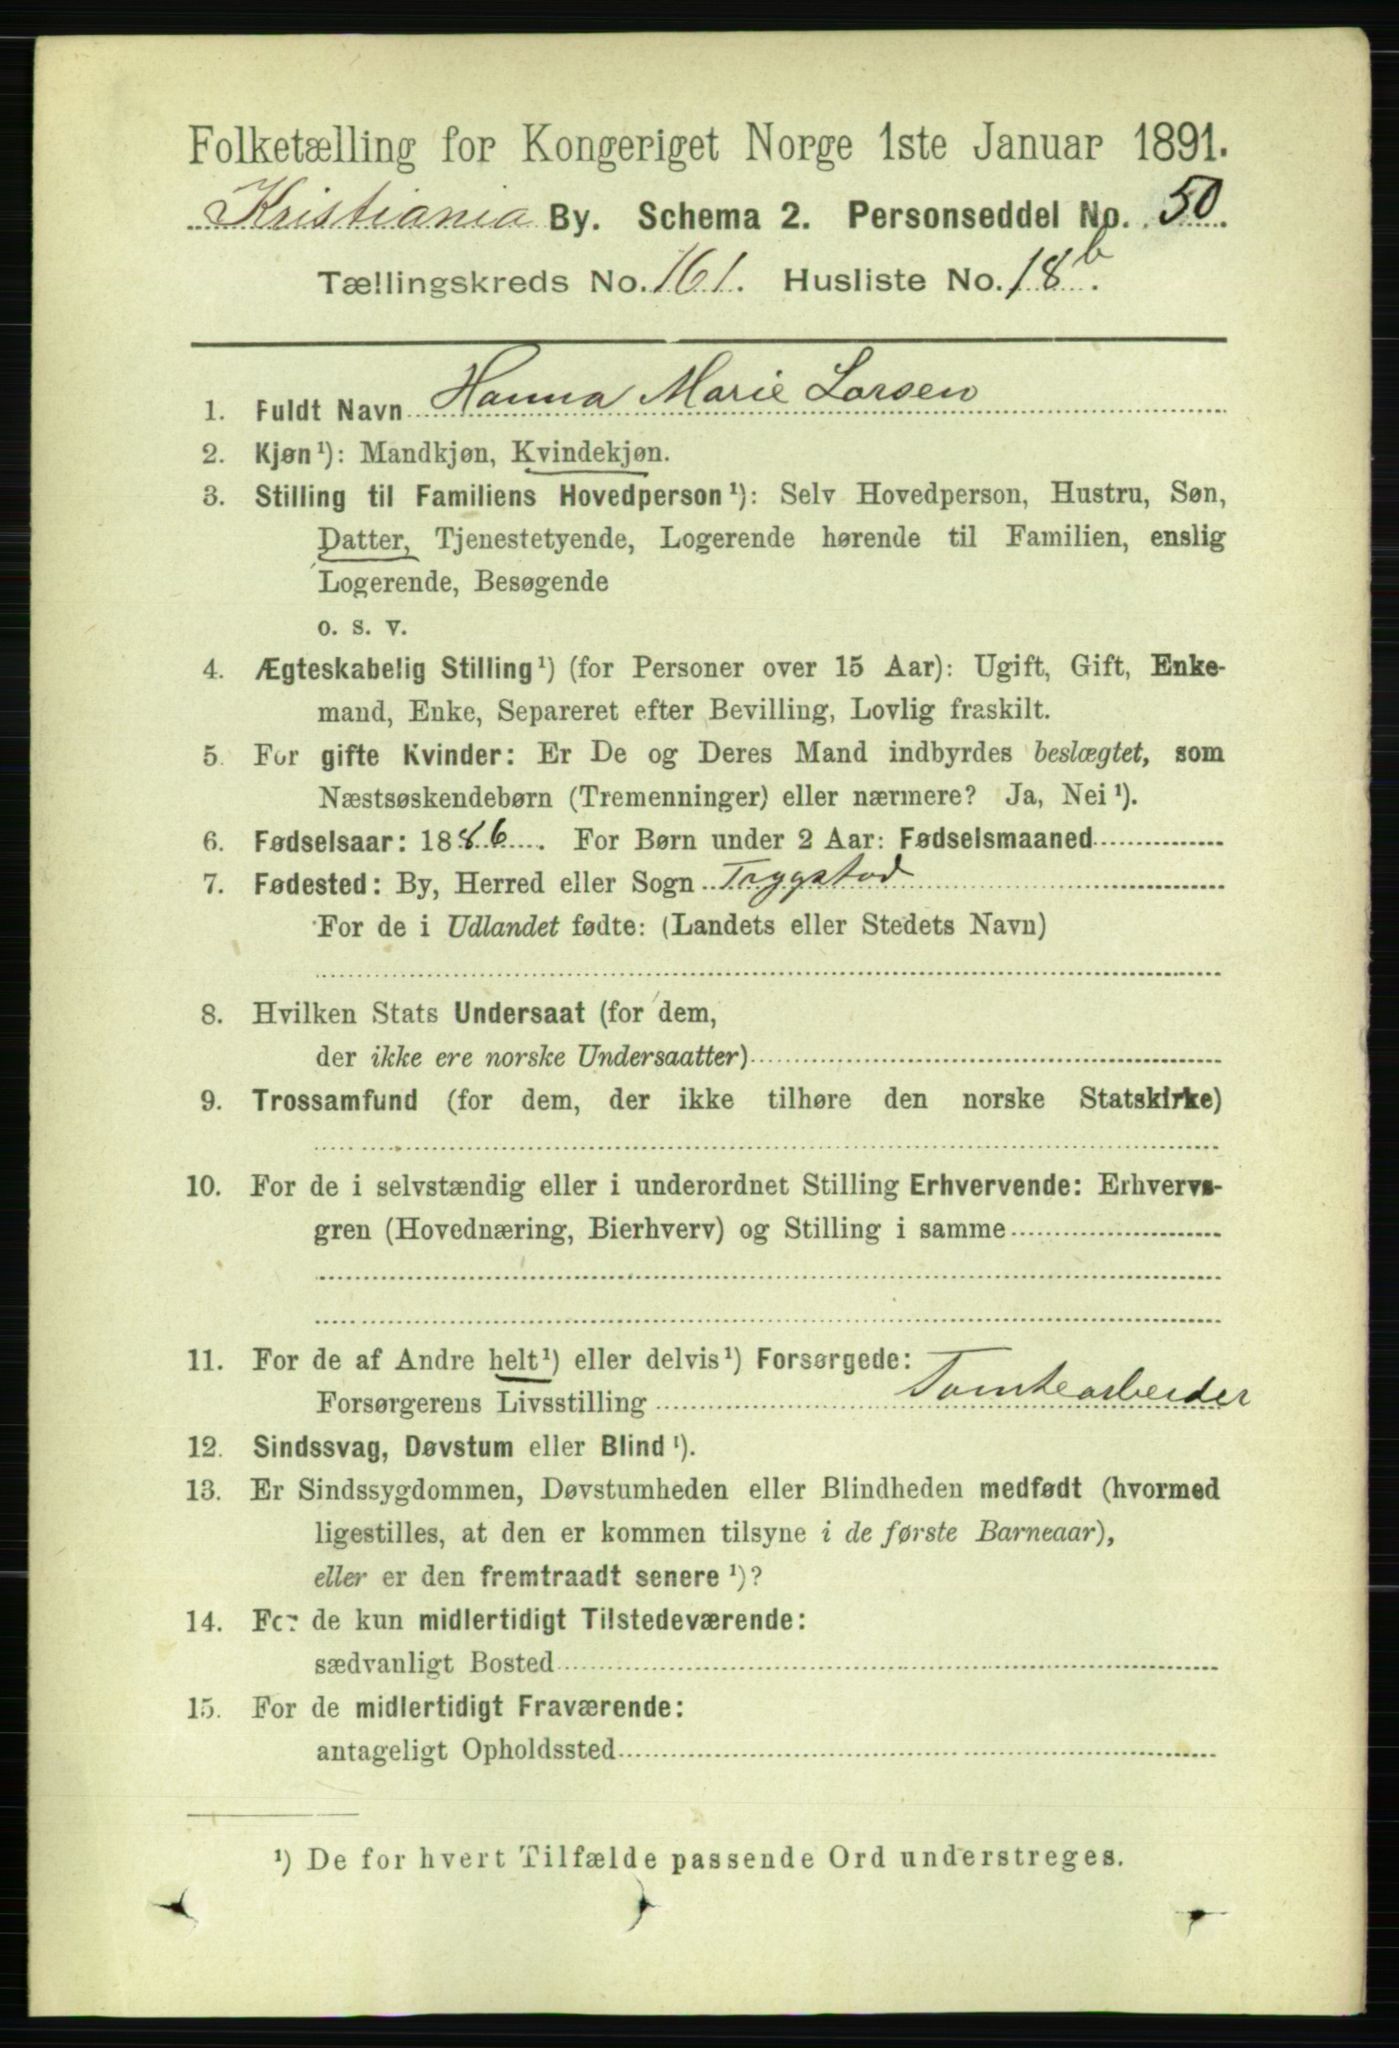 Folketælling for Kongeriget Norge 1ste Januar 1891.
Kristiania By. Schema 2. Personseddel No. 50.
Tællingskreds No. 161. Husliste No. 18b.
1. Fuldt Navn Hanna Marie Larsen
2. Kjøn¹): Mandkjøn, Kvindekjøn.
3. Stilling til Familiens Hovedperson¹): Selv Hovedperson, Hustru, Søn,
Datter, Tjenestetyende, Logerende hørende til Familien, enslig
Logerende, Besøgende
o. s. v.
4. Ægteskabelig Stilling¹) (for Personer over 15 Aar): Ugift, Gift, Enke-
mand, Enke, Separeret efter Bevilling, Lovlig fraskilt.
5. For gifte Kvinder: Er De og Deres Mand indbyrdes beslægtet, som
Næstsøskendebørn (Tremenninger) eller nærmere? Ja, Nei¹).
6. Fødselsaar: 1886. For Børn under 2 Aar: Fødselsmaaned
7. Fødested: By, Herred eller Sogn Trygstad
For de i Udlandet fødte: (Landets eller Stedets Navn)
8. Hvilken Stats Undersaat (for dem,
der ikke ere norske Undersaatter)
9. Trossamfund (for dem, der ikke tilhøre den norske Statskirke)
10. For de i selvstændig eller i underordnet Stilling Erhvervende: Erhvervs-
gren (Hovednæring, Bierhverv) og Stilling i samme
11. For de af Andre helt¹) eller delvis¹) Forsørgede:
Forsørgerens Livsstilling Tomtearbeider
12. Sindssvag, Døvstum eller Blind¹).
13. Er Sindssygdommen, Døvstumheden eller Blindheden medfødt (hvormed
ligestilles, at den er kommen tilsyne i de første Barneaar),
eller er den fremtraadt senere¹)?
14. For de kun midlertidigt Tilstedeværende:
sædvanligt Bosted
15. For de midlertidigt Fraværende:
antageligt Opholdssted
¹) De for hvert Tilfælde passende Ord understreges.